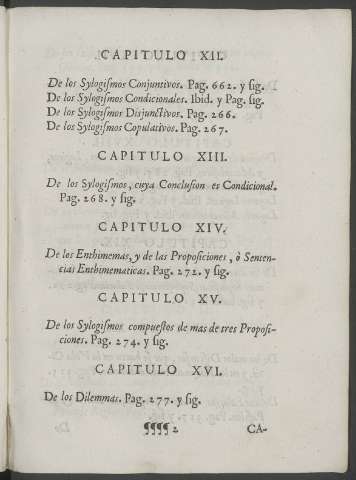 CAPITULO XII.
De los Sylogismos Conjuntivos. Pag. 662. y sig.
De los Sylogismos Condicionales. Ibid. y Pag. sig.
De los Sylogismos Disjunctivos. Pag. 266.
De los Sylogismos Copulativos. Pag. 267.
CAPITULO XIII.
De los Sylogismos, cuya Conclusion es Condicional.
Pag. 268. y sig.
CAPITULO XIV.
De los Enthimemas, y de las Proposiciones, ò Senten-
cias Enthimematicas. Pag. 272. y sig.
CAPITULO XV.
De los Sylogismos compuestos de mas de tres Proposi-
ciones. Pag. 274. y sig.
CAPITULO XVI.
De los Dilemmas. Pag. 277. y sig.
¶¶¶¶ 2 CA-